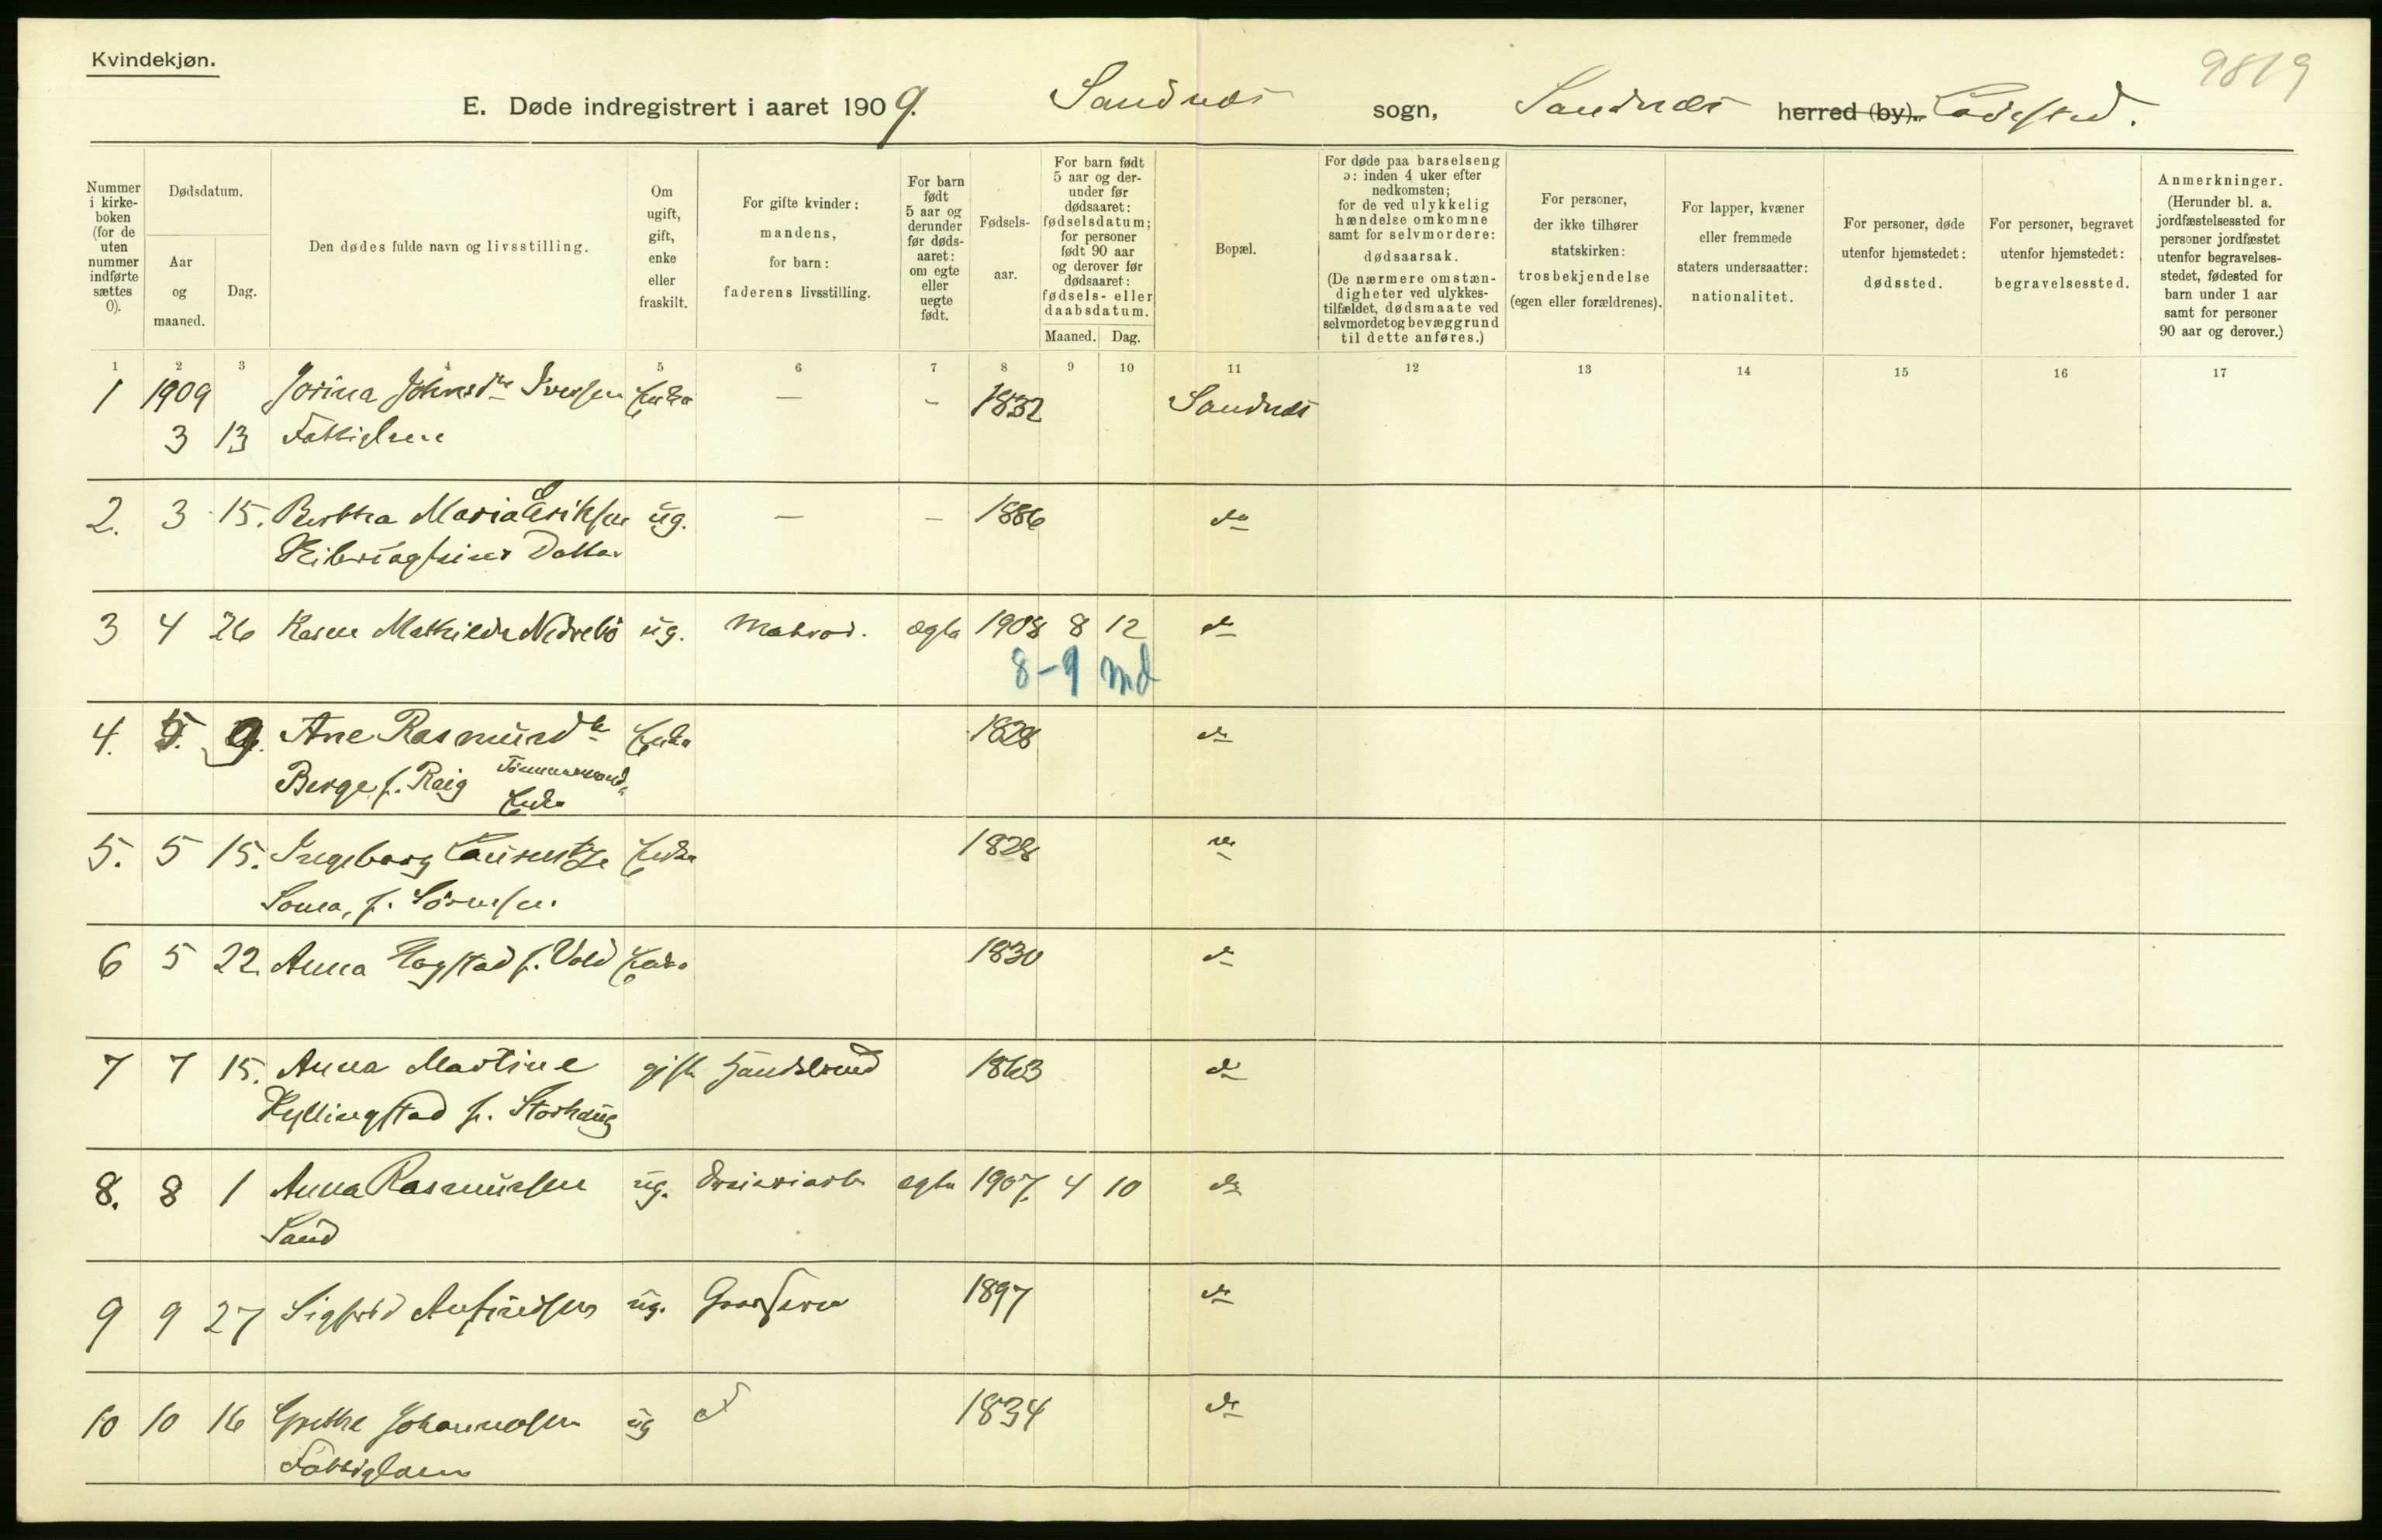 Kvindekjøn.
9819
E. Døde indregistrert i aaret 1909. Sandnæs sogn, Sandnæs herred (by). Ladested.
Nummer i kirkeboken (for de uten nummer indførte sættes 0).
Dødsdatum.
Aar og maaned.
Dag.
Den dødes fulde navn og livsstilling.
Om ugift, gift, enke eller fraskilt.
For gifte kvinder: mandens, for barn: faderens livsstilling.
For barn født 5 aar og derunder før dødsaaret: om egte eller uegte født.
Fødselsaar.
For barn født 5 aar og derunder før dødsaaret: fødselsdatum; for personer født 90 aar og derover før dødsaaret: fødsels- eller daabsdatum.
Maaned. Dag.
Bopæl.
For døde paa barselseng ɔ: inden 4 uker efter nedkomsten; for de ved ulykkelig hændelse omkomne samt for selvmordere: dødsaarsak. (De nærmere omstændigheter ved ulykkestilfældet, dødsmaate ved selvmordet og bevæggrund til dette anføres.)
For personer, der ikke tilhører statskirken: trosbekjendelse (egen eller forældrenes).
For lapper, kvæner eller fremmede staters undersaatter: nationalitet.
For personer, døde utenfor hjemstedet: dødssted.
For personer, begravet utenfor hjemstedet: begravelsessted.
Anmerkninger. (Herunder bl. a. jordfæstelsessted for personer jordfæstet utenfor begravelsesstedet, fødested for barn under 1 aar samt for personer 90 aar og derover.)
1 2 3 4 5 6 7 8 9 10 11 12 13 14 15 16 17
1 1909 Jorina Johnsdtr Iversen Enke — - 1832 Sandnæs
3 13 Fattiglem
2. 3 15. Berthea Maria Eriksen ug. — — 1886 do
Datter
3 4 26 Karen Mathilde Nedrebö ug. Matros. ægte 1908 8 12 do
8-9 md
4. 5. 9. Ane Rasmusdtr Enke 1828 do
Berge f. Raig Tømmermands
Enke
5. 5 15. Ingeborg Laurentze Enke 1828 do
Soma, f. Sörensen.
6 5 22. Anna Hogstad f. Vold Enke 1830 do
7 7 15. Anna Martine gift Handelsmd 1863 do
Kyllingstad f. Storhaug
8. 8 1 Anna Rasmussen ug. ægte 1907. 4 10 do
Sand
9 9 27 Sigfrid Anfindsen ug. 1897 do
10 10 16 Grethe Johannesen ug 1834 do
Fattiglem